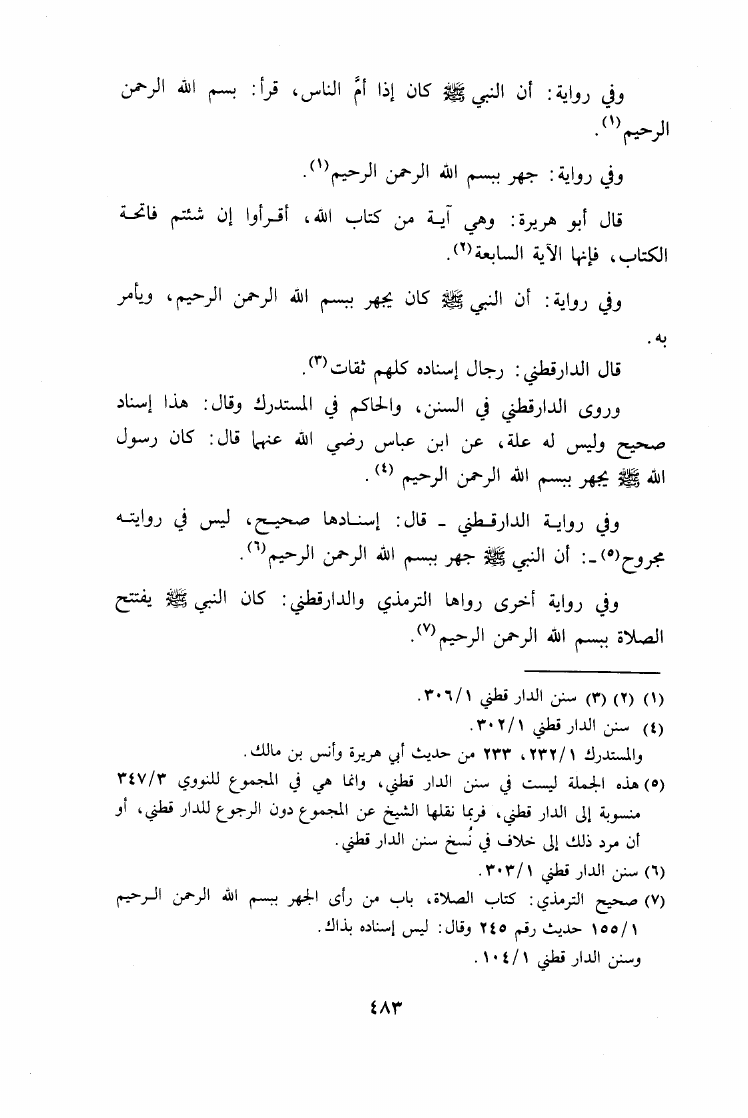 وفي رواية: أن النبي ﷺ كان إذا أمَّ الناس، قرأ: بسم الله الرحمن
الرحيم(١).
وفي رواية: جهر ببسم الله الرحمن الرحيم(١).
قال أبو هريرة: وهي آيـة من كتاب الله، أقـرأوا إن شئتم فاتحـة
الكتاب، فإنها الآية السابعة(٢).
وفي رواية: أن النبي ﷺ كان يجهر ببسم الله الرحمن الرحيم، ويأمر
به.
قال الدارقطني: رجال إسناده كلهم ثقات(٣).
وروى الدارقطني في السنن، والحاكم في المستدرك وقال: هذا إسناد
صحيح وليس له علة، عن ابن عباس رضي الله عنهما قال: كان رسول
الله ﷺ يجهر ببسم الله الرحمن الرحيم (٤).
وفي روايـة الدارقـطني - قال: إسنـادها صحيـح، ليس في روايتـه
مجروح(٥) -: أن النبي ﷺ جهر ببسم الله الرحمن الرحيم(٦).
وفي رواية أخرى رواها الترمذي والدارقطني: كان النبي ﷺ يفتتح
الصلاة ببسم الله الرحمن الرحيم(٧).
(١) (٢) (٣) سنن الدار قطني ٣٠٦/١.
(٤) سنن الدار قطني ٣٠٢/١.
والمستدرك ٢٣٢/١، ٢٣٣ من حديث أبي هريرة وأنس بن مالك.
(٥) هذه الجملة ليست في سنن الدار قطني، وانما هي في المجموع للنووي ٣٤٧/٣
منسوبة إلى الدار قطني، فربما نقلها الشيخ عن المجموع دون الرجوع للدار قطني، أو
أن مرد ذلك إلى خلاف في نُسخ سنن الدار قطني.
(٦) سنن الدار قطني ٣٠٣/١.
(٧) صحيح الترمذي: كتاب الصلاة، باب من رأى الجهر ببسم الله الرحمن الـرحيم
١٥٥/١ حديث رقم ٢٤٥ وقال: ليس إسناده بذاك.
وسنن الدار قطني ١٠٤/١.
٤٨٣